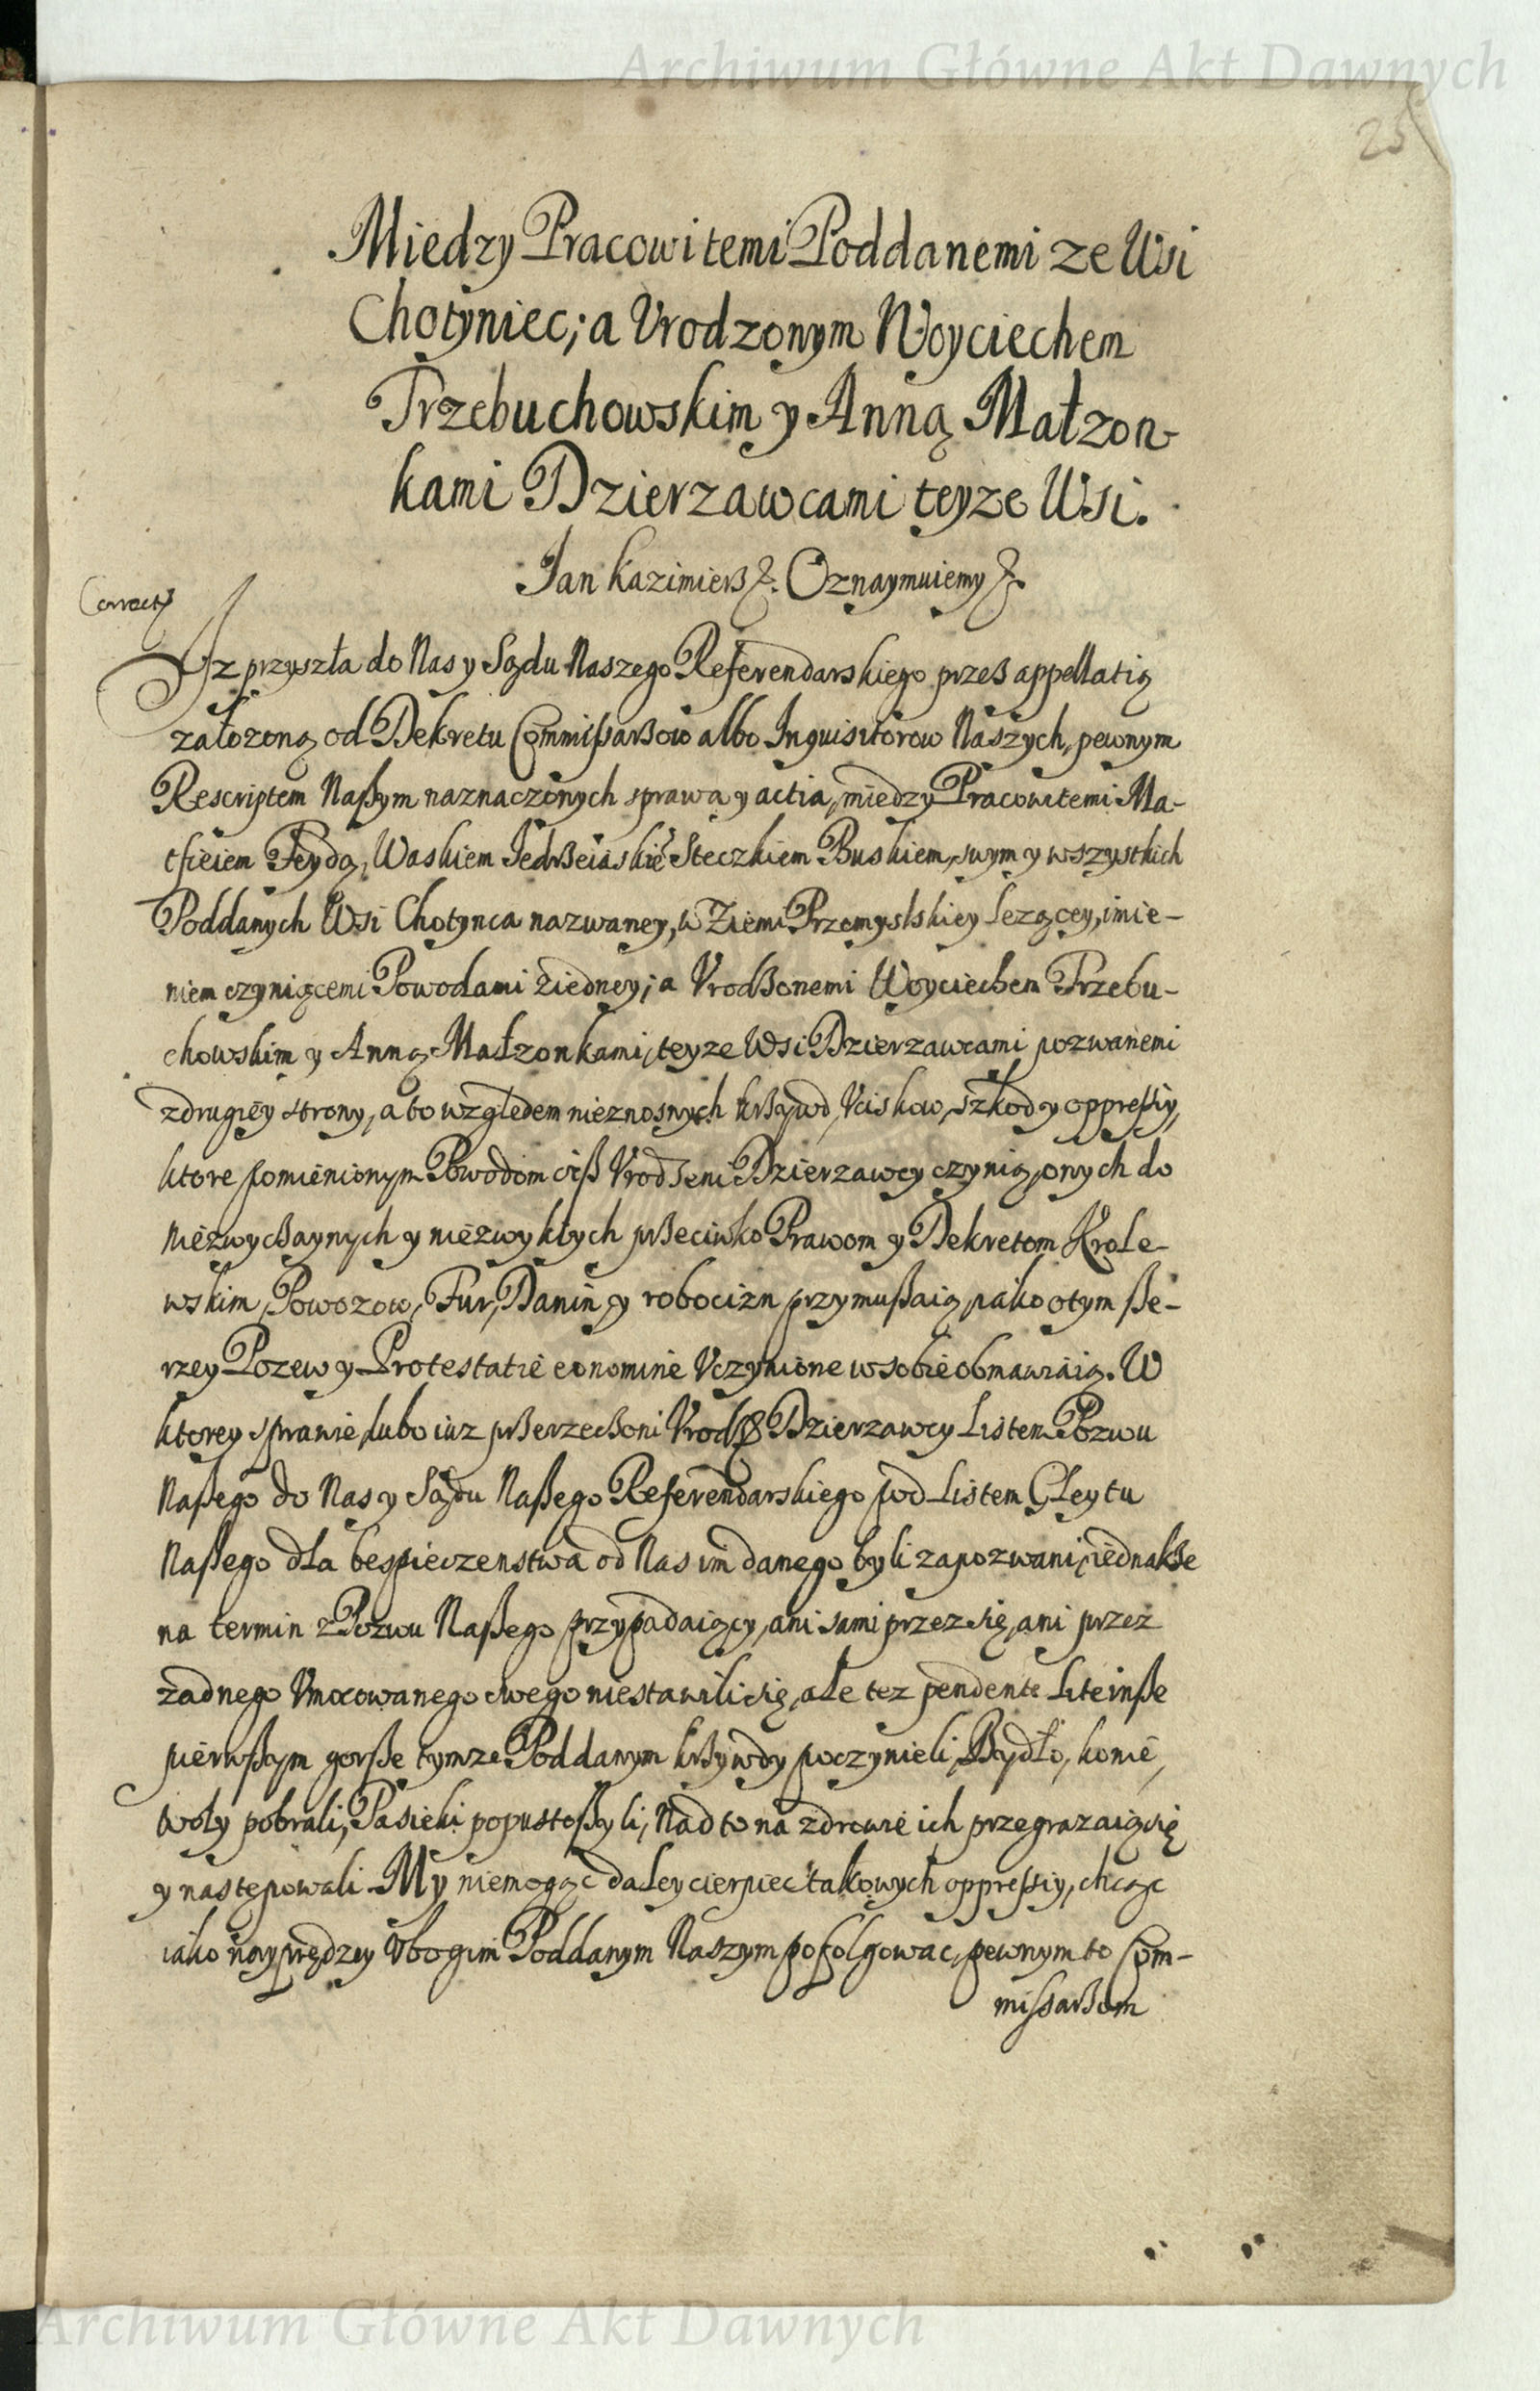 Archiwum Główne Akt Dawnych
25
Miedzy Pracowitemi Poddanemi ze Wsi
Chotyniec; a Vrodzonym Woyciechem
Trzebuchowskim y Anną Małzon-
kami Dzierzawcami teyze Wsi.
Jan Kazimierß &. Oznaymuiemy &.
Correct
Jz przyszła do Nas y Sądu Naszego Referendarskiego przeß appellatią
załozoną od Dekretu Commißarßow albo Inquisitorow Naszych, pewnym
Rescriptem Naßym naznaczonych sprawa y actia, miedzy Pracowitemi Ma-
Feydą, Waskiem Steczkiem Buskiem, swym y wszystkich
Poddanych Wsi Chotynca nazwaney, w Ziemi Przemyslskiey lezącey, imie-
niem czyniącemi Powodami ziedney; a Vrodßonemi Woyciechem Trzebu-
chowskim y Anną Małzonkami, teyze Wsi Dzierzawcami pozwanemi
zdrugiey strony, a to względem nieznosnych krßywd, Vciskow, szkod y oppreßiy,
ktore pomienionym Powodom ciß Vrodzeni Dzierzawcy czynią, onych do
niezwyczaynych y niezwykłych prßeciwko Prawom y Dekretom Krole-
wskim, Powozow, Fur, Danin, y robocizn przymußaią, iako otym ße-
rzey Pozew y Protestatie eo nomine Vczynione w sobie obmawiaią. W
ktorey sprawie, lubo iuz prßerzeczoni Vrodz Dzierzawcy Listem Pozwu
Naßego do Nas y Sądu Naßego Referendarskiego pod Listem Gleytu
Naßego dla bespieczenstwa od Nas im danego byli zapozwani, iednakße
na termin z Pozwu Naßego przypadaiący, ani sami przez się, ani przez
zadnego Vmocowanego swego niestawili się, ale tez pendente lite inße
pierwßym gorße tymze Poddanym krßywdy poczynieli, Bydło, konie,
woły pobrali, Pasieki popustoßyli, Nad to na zdrowie ich przegrazaią się
y nastepowali. My niemogąc daley cierpiec takowych oppreßiy, chcąc
iako nayprędzey Vbogim Poddanym Naszym pofolgowac, pewnym to Com-
missarßom
Archiwum Główne Akt Dawnych